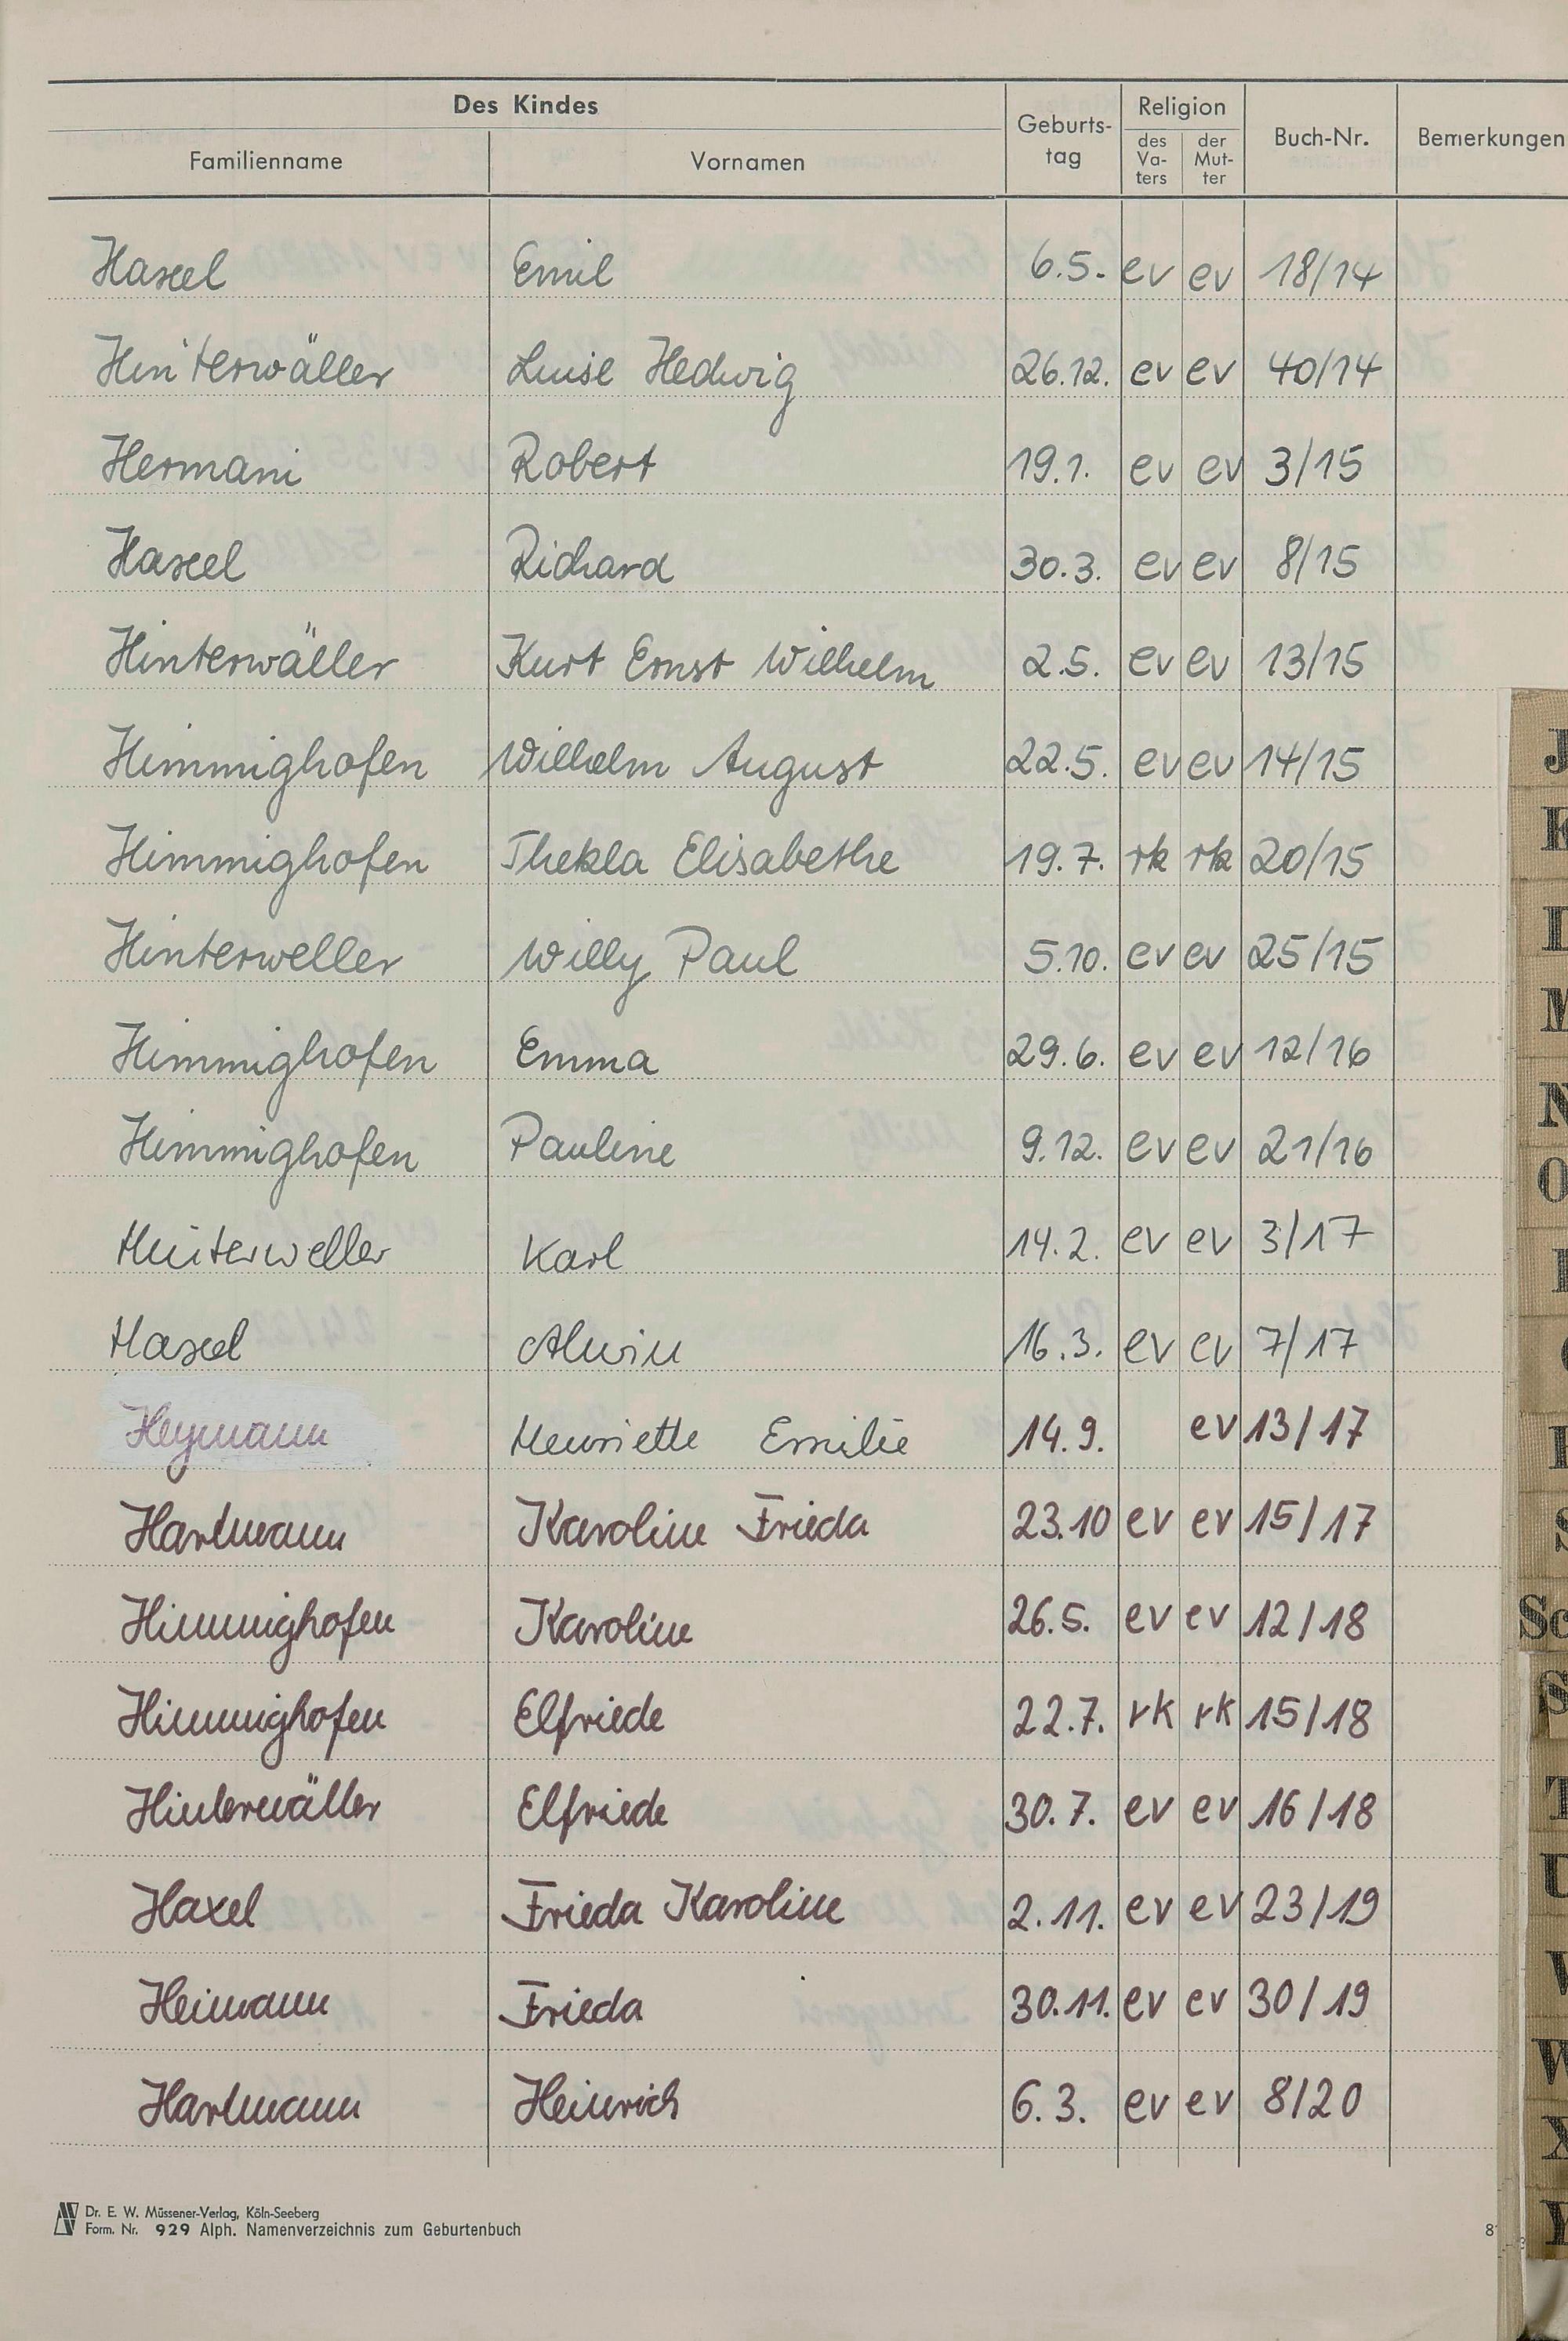 Des Kindes Geburts-tag Religion Buch-Nr. Bemerkungen
Familienname Vornamen des Va-ters der Mut-ter
Haxel Emil 6.5. ev ev 18/14
Hinterwäller Luise Hedwig 26.12. ev ev 40/14
Hermani Robert 19.1. ev ev 3/15
Haxel Richard 30.3. ev ev 8/15
Hinterwäller Kurt Ernst Wilhelm 2.5. ev ev 13/15
Himmighofen Wilhelm August 22.5. ev ev 14/15
Himmighofen Thekla Elisabethe 19.7. rk rk 20/15
Hinterweller Willy Paul 5.10. ev ev 25/15
Himmighofen Emma 29.6. ev ev 12/16
Himmighofen Pauline 9.12. ev ev 21/16
Hinterweller Karl 14.2. ev ev 3/17
Haxel Alwin 16.3. ev ev 7/17
Heymann Henriette Emilie 14.9. ev 13/17
Hartmann Karoline Frieda 23.10 ev ev 15/17
Himmighofen Karoline 26.5. ev ev 12/18
Himmighofen Elfriede 22.7. rk rk 15/18
Hinterwäller Elfriede 30.7. ev ev 16/18
Haxel Frieda Karoline 2.11. ev ev 23/19
Heimann Frieda 30.11. ev ev 30/19
Hartmann Heinrich 6.3. ev ev 8/20
Dr. E. W. Müssener-Verlag, Köln-Seeberg
Form. Nr. 929 Alph. Namenverzeichnis zum Geburtenbuch
J
K
L
M
N
O
S
Sc
T
U
V
W
X
Y